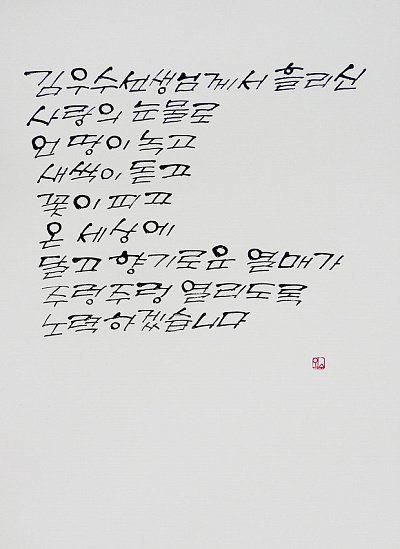 김우수선생님께서 흘리신
사랑의 눈물로
언 땅이 녹고
새싹이 돋고
꽃이 피고
온 세상에
달고 향기로운 열매가
주렁주렁 열리도록
노력하겠습니다